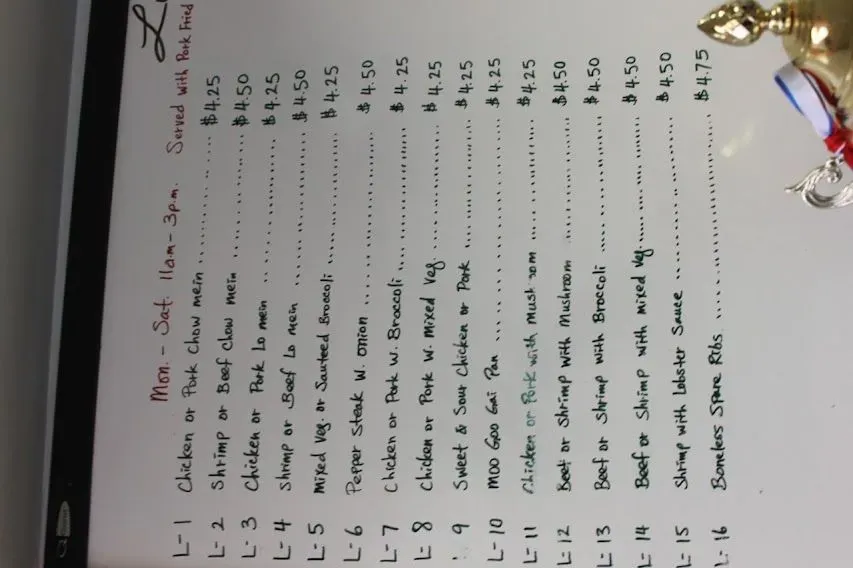 Mon. - Sat. 11a.m - 3p.m. Served with Pork Fried
L-1 Chicken or Pork Chow mein ............... $4.25
L-2 Shrimp or Beef Chow mein ............... $4.50
L-3 Chicken or Pork Lo mein ............... $4.25
L-4 Shrimp or Beef Lo mein ............... $4.50
L-5 Mixed Veg. or Sauteed Broccoli ............... $4.25
L-6 Pepper Steak W. onion ............... $4.50
L-7 Chicken or Pork W. Broccoli ............... $4.25
L-8 Chicken or Pork W. Mixed Veg. ............... $4.25
9 Sweet & Sour Chicken or Pork ............... $4.25
L-10 Moo Goo Gai Pan ............... $4.25
L-11 Chicken or Pork with Mushroom ............... $4.25
L-12 Beef or Shrimp with Mushroom ............... $4.50
L-13 Beef or Shrimp with Broccoli ............... $4.50
L-14 Beef or Shrimp with mixed Veg. ............... $4.50
L-15 Shrimp with Lobster Sauce ............... $4.50
L-16 Boneless Spare Ribs ............... $4.75